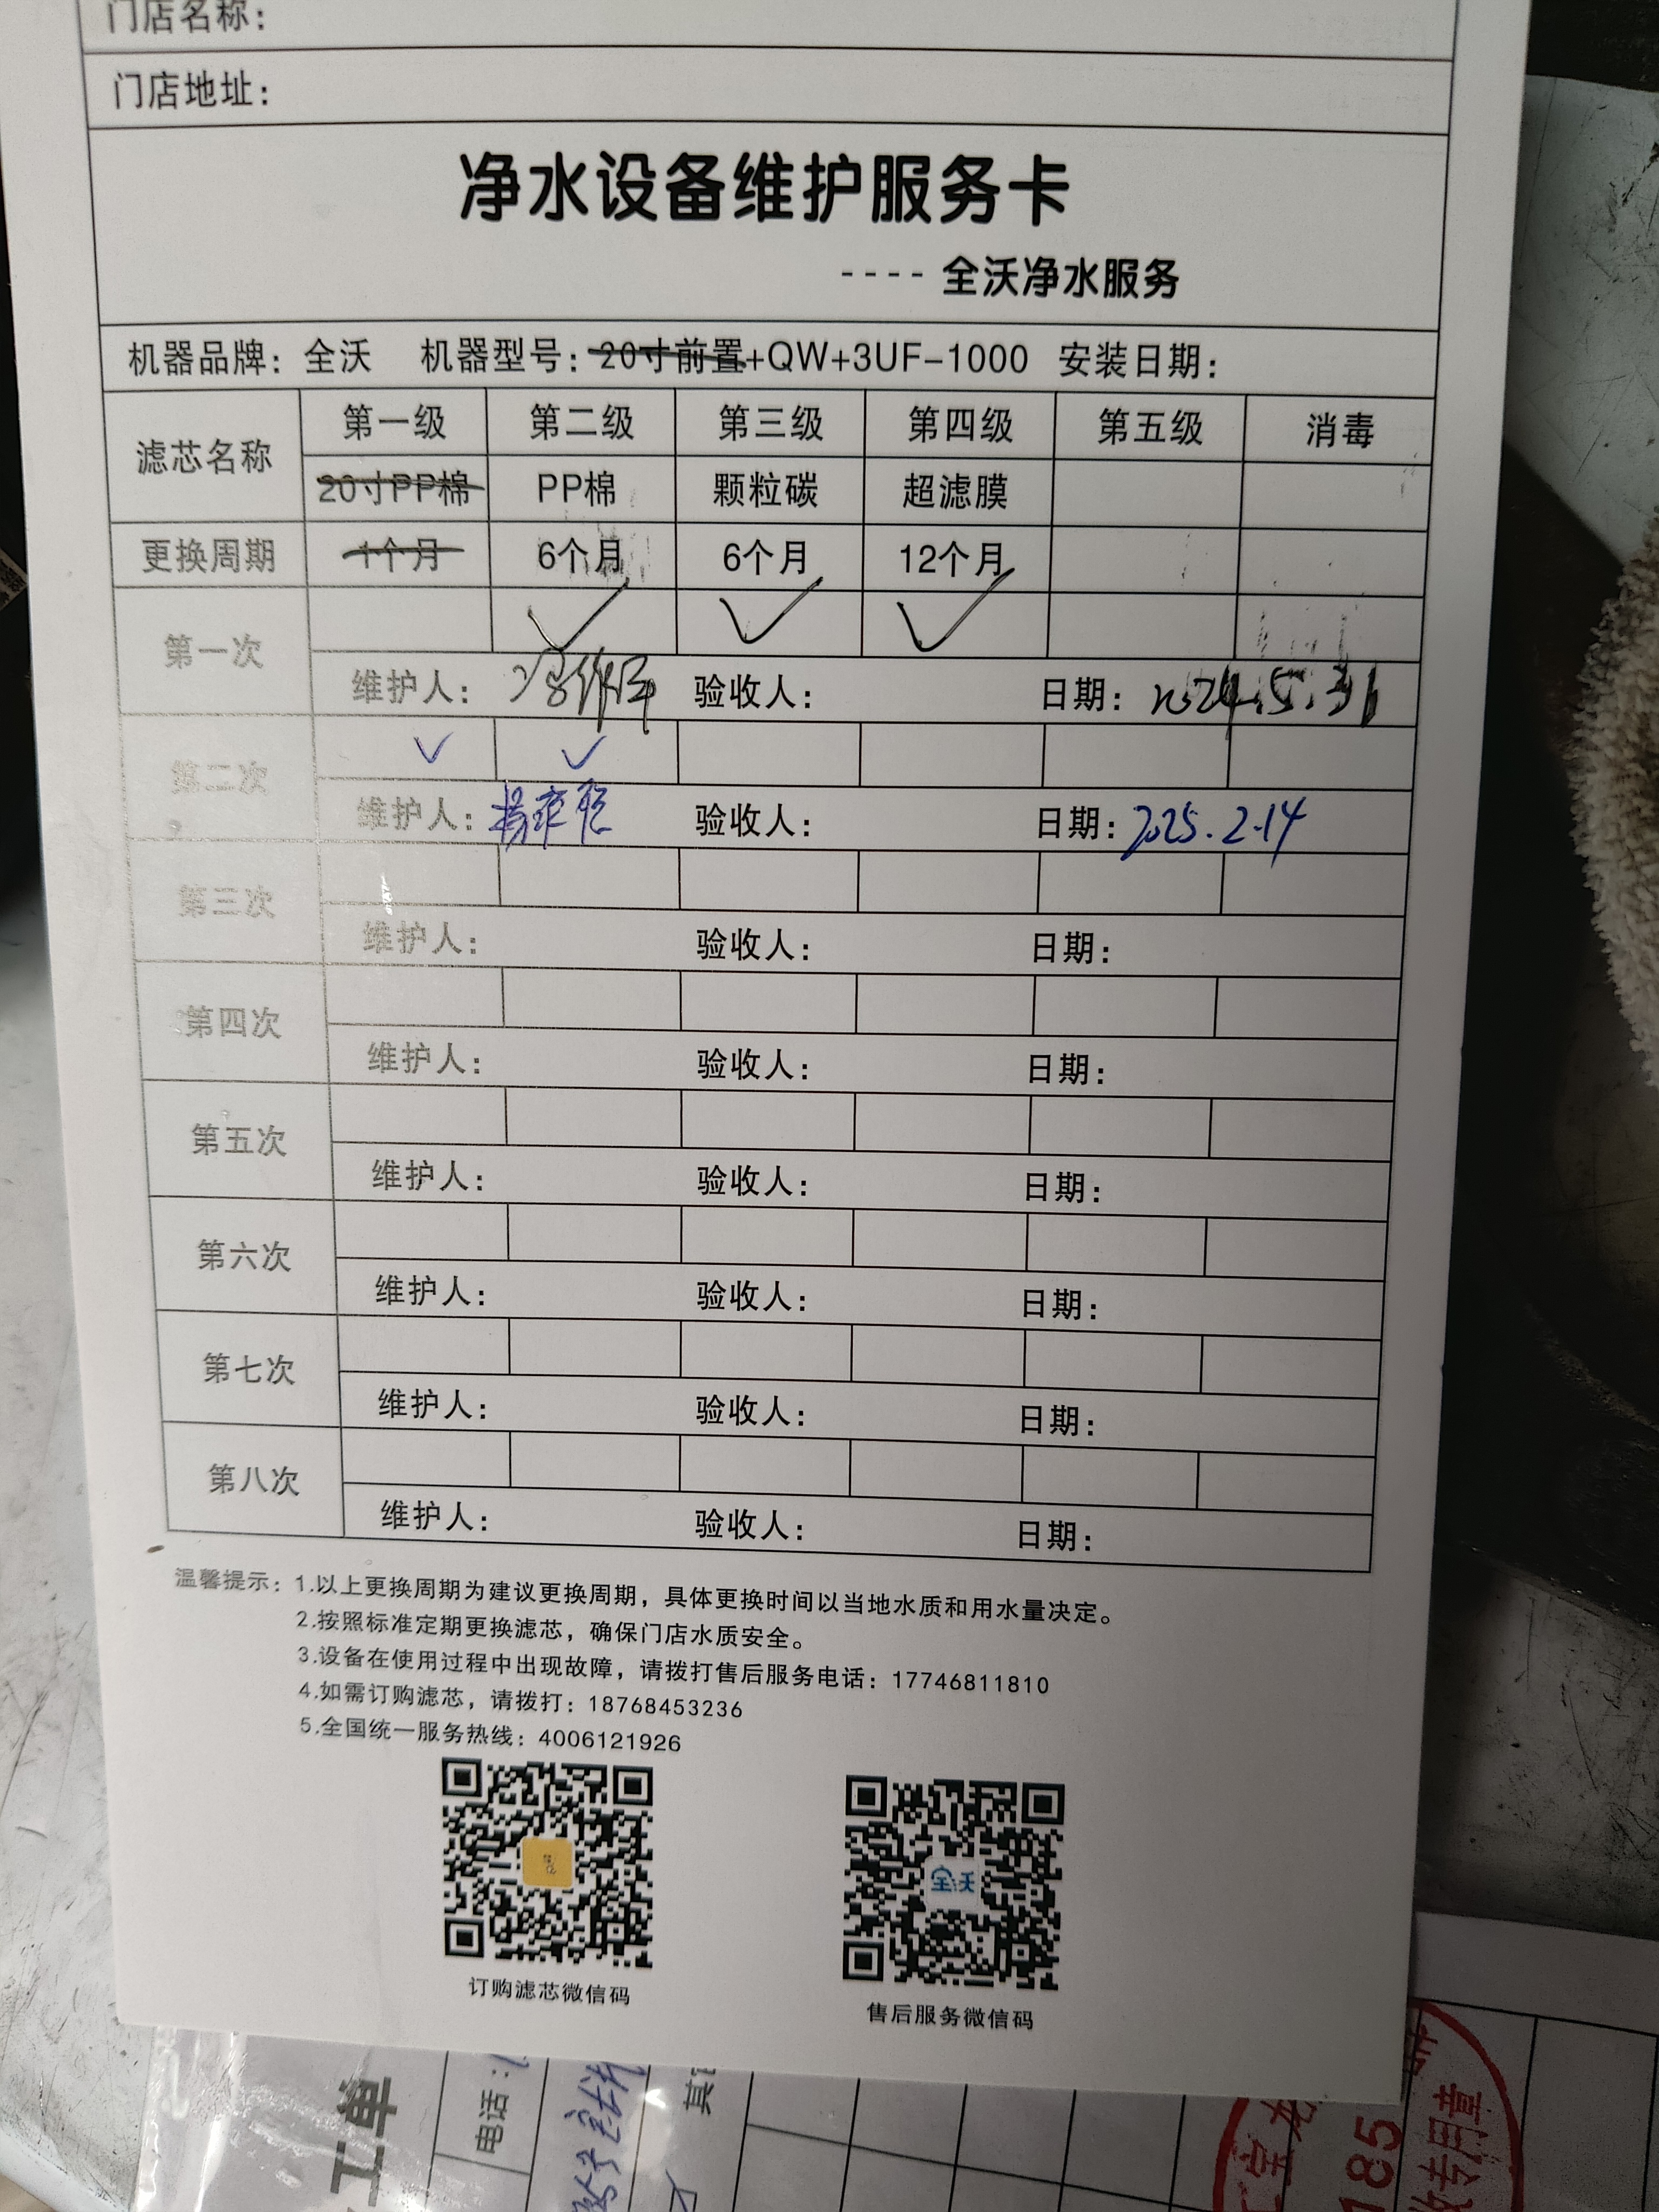 门店名称：
门店地址：
净水设备维护服务卡
---- 全沃净水服务
机器品牌：全沃 机器型号：20寸前置+QW+3UF-1000 安装日期：
滤芯名称 第一级 第二级 第三级 第四级 第五级 消毒
20寸PP棉 PP棉 颗粒碳 超滤膜
更换周期 1个月 6个月 6个月 12个月
第一次 ✓ ✓ ✓
维护人： 验收人： 日期：2024.5.31
第二次 ✓ ✓
维护人：杨 验收人： 日期：2025.2.14
第三次
维护人： 验收人： 日期：
第四次
维护人： 验收人： 日期：
第五次
维护人： 验收人： 日期：
第六次
维护人： 验收人： 日期：
第七次
维护人： 验收人： 日期：
第八次
维护人： 验收人： 日期：
温馨提示：1.以上更换周期为建议更换周期，具体更换时间以当地水质和用水量决定。
2.按照标准定期更换滤芯，确保门店水质安全。
3.设备在使用过程中出现故障，请拨打售后服务电话：17746811810
4.如需订购滤芯，请拨打：18768453236
5.全国统一服务热线：4006121926
全沃
订购滤芯微信码
售后服务微信码
工单
电话：
其
185
专用章